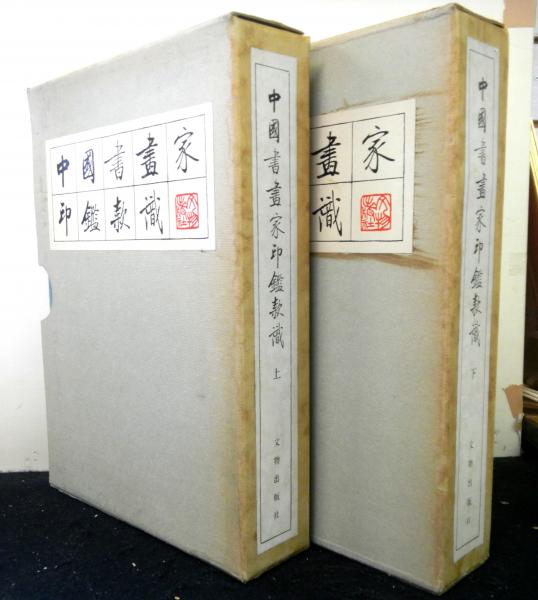 中國書畫家
印鑑款識
中國書畫家印鑑款識 上
文物出版社
畫家
識
中國書畫家印鑑款識 下
文物出版社